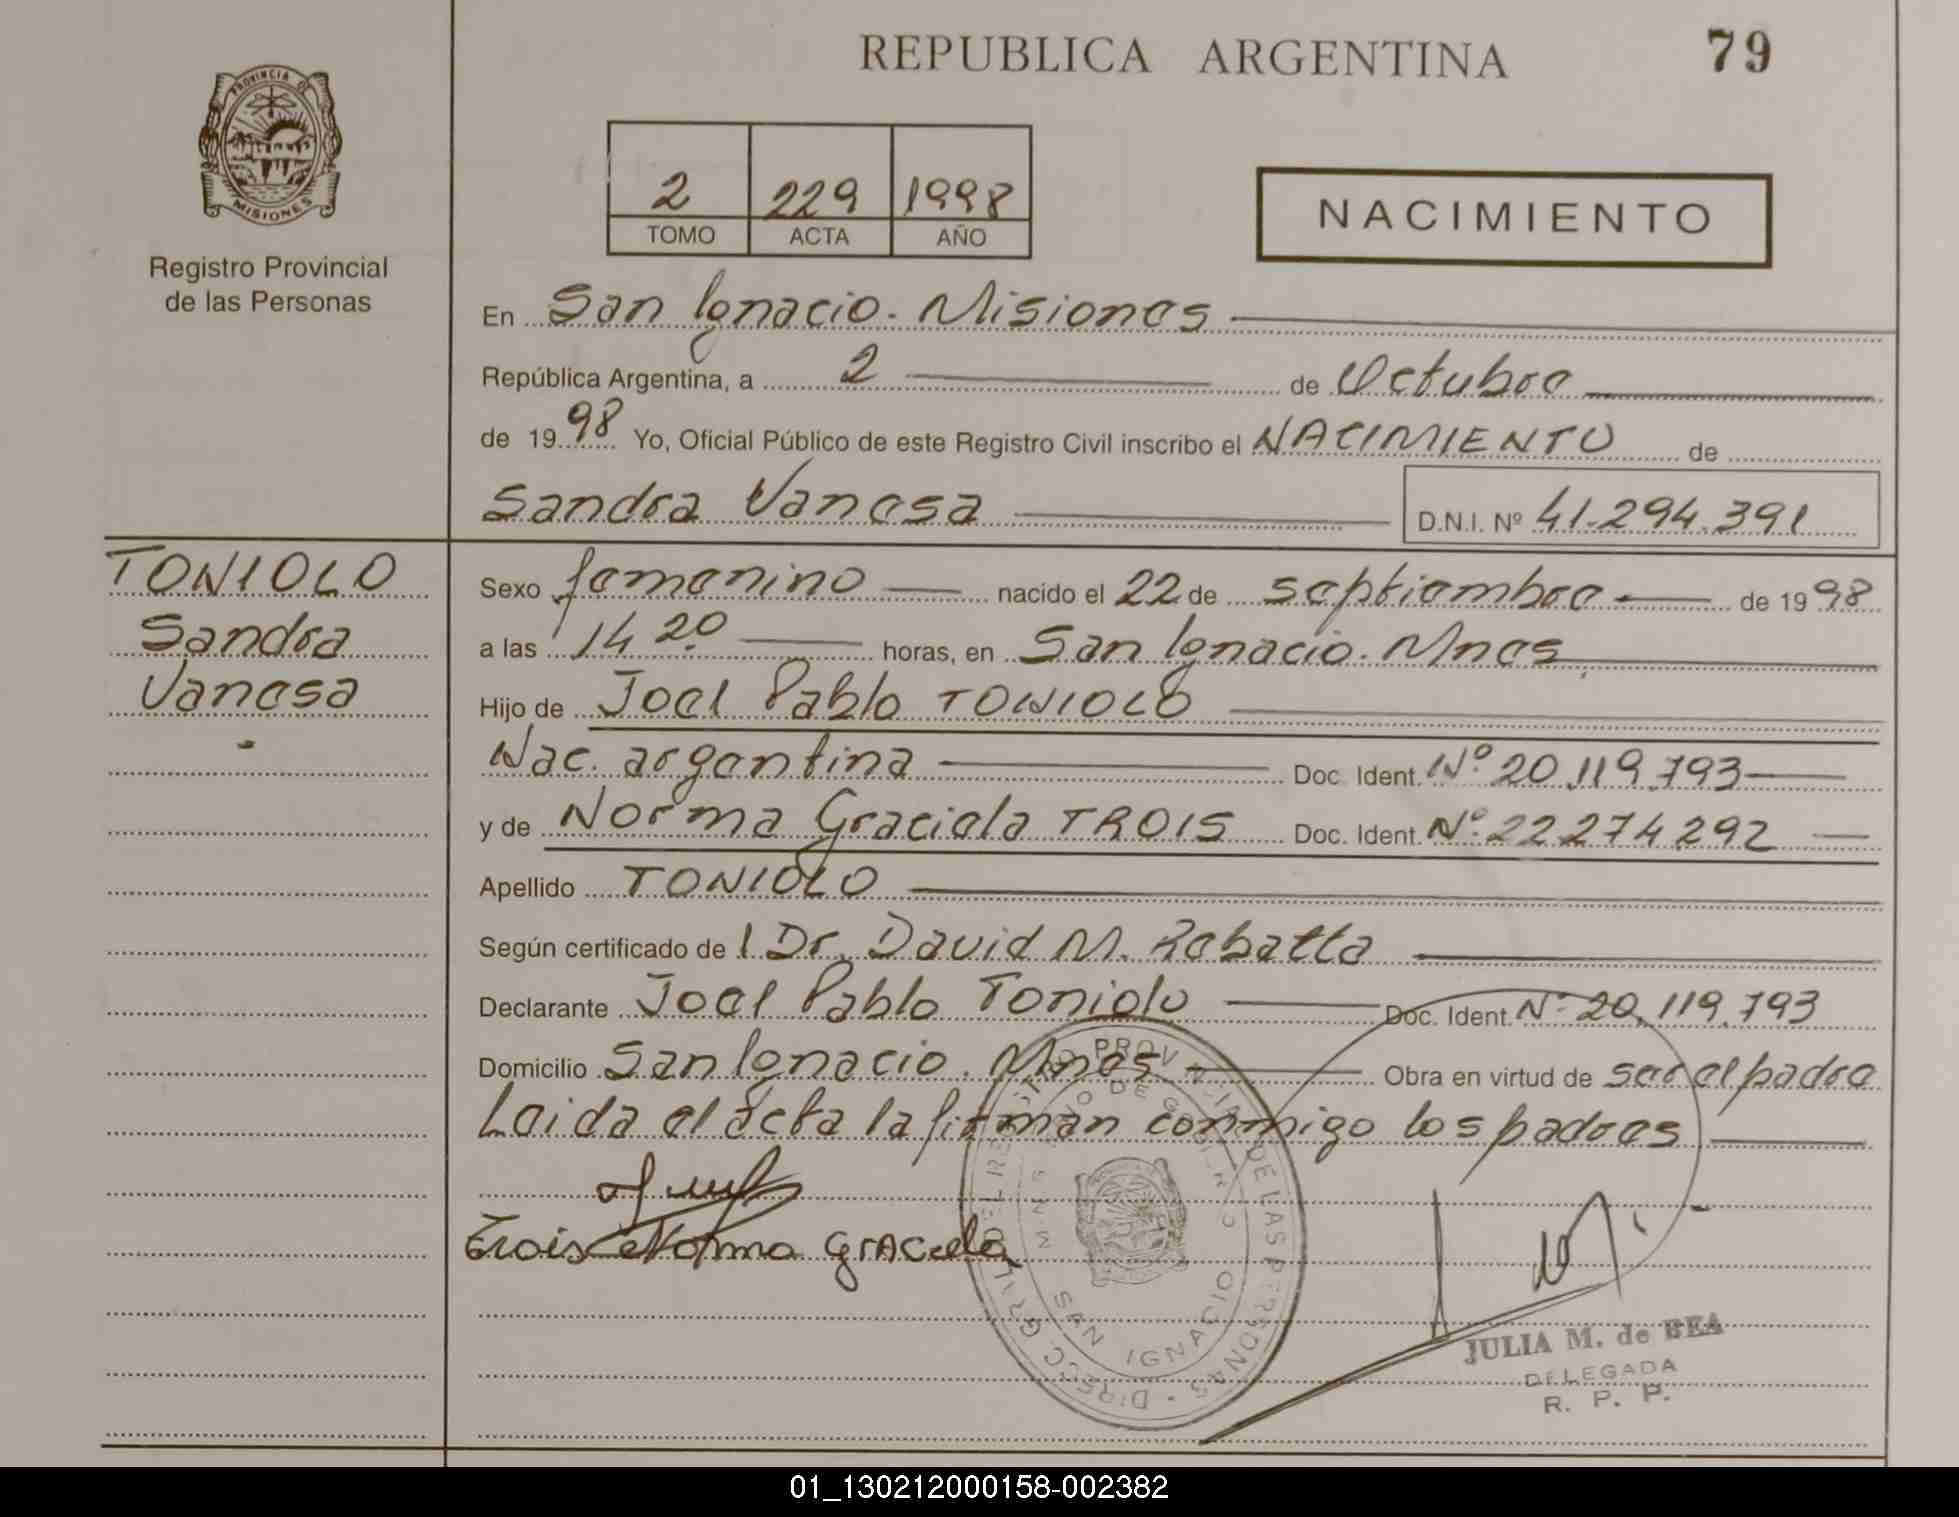 REPUBLICA ARGENTINA
79
PROVINCIA DE
MISIONES
Registro Provincial
de las Personas
2 229 1998
TOMO ACTA AÑO
NACIMIENTO
En San Ignacio. Misiones
República Argentina, a 2 de Octubre
de 1998 Yo, Oficial Público de este Registro Civil inscribo el NACIMIENTO de
Sandra Vanesa D.N.I. Nº 41.294.391
TONIOLO
Sandra
Vanesa
Sexo femenino nacido el 22 de septiembre de 1998
a las 14 20 horas, en San Ignacio. Mnes
Hijo de Joel Pablo TONIOLO
Nac. argentina Doc. Ident. Nº 20.119.793
y de Norma Graciela TROIS Doc. Ident. Nº 22.274.292
Apellido TONIOLO
Según certificado de l Dr. David M. Rebatta
Declarante Joel Pablo Toniolo Doc. Ident. Nº 20.119.793
Domicilio San Ignacio. Mnes Obra en virtud de ser el padre
Leida el acta la firman conmigo los padres
Trois Norma Graciela
SAN IGNACIO
JULIA M. de BEA
DELEGADA
R. P. P.
01_130212000158-002382